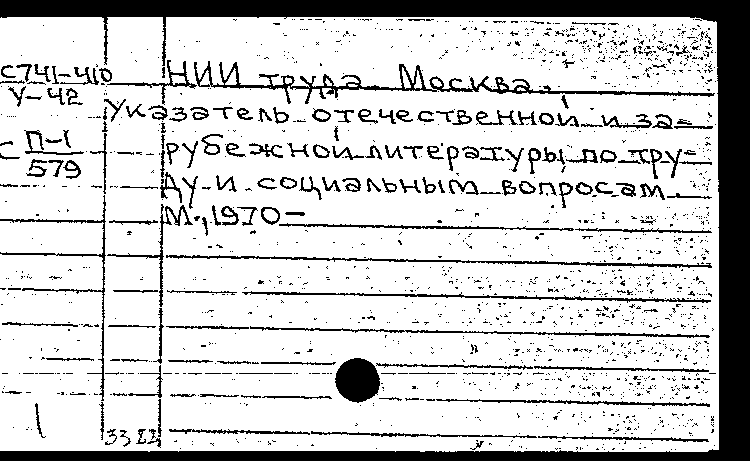 С741-410
У-42
НИИ труда. Москва.
Указатель отечественной и за=
С П-1
579
рубежной литературы по тру=
ду и социальным вопросам.
М., 1970-
1
33 22